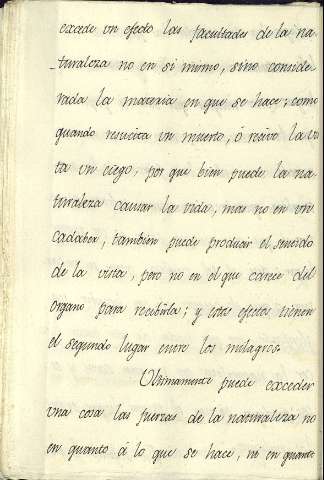 excede vn efecto las facultades de la na-
turaleza no en si mismo, sino conside-
rada la materia en que se hace; como
quando resucita vn muerto, ó recive la vis
ta vn ciego, por que bien puede la na-
turaleza causar la vida, mas no en vn
cadaber, tambien puede producir el sentido
de la vista, pero no en el que carece del
organo para recibirla; y estos efectos tienen
el segundo lugar entre los milagros.
Ultimamente puede exceder
vna cosa las fuerzas de la naturaleza no
en quanto á lo que se hace, ni en quanto